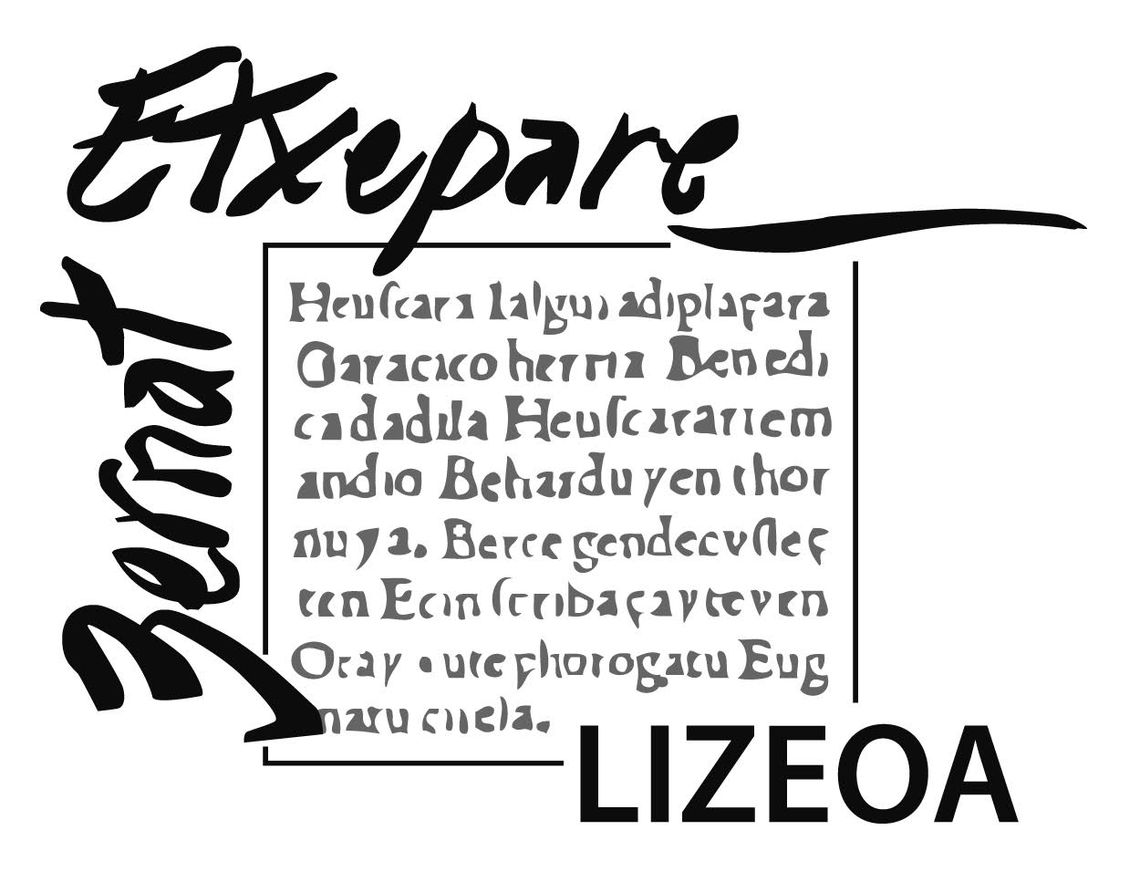 Etxepare
Bernat
Heuſcara Ialgui adiplaçara
Garacico herria Benedi
cadadila Heuſcarariem
andio Beharduyen thor
nuya. Berce gendecvſteç
ten Ecin ſcribaçayteven
Oray dute phorogatu Eug
natu cirela.
LIZEOA